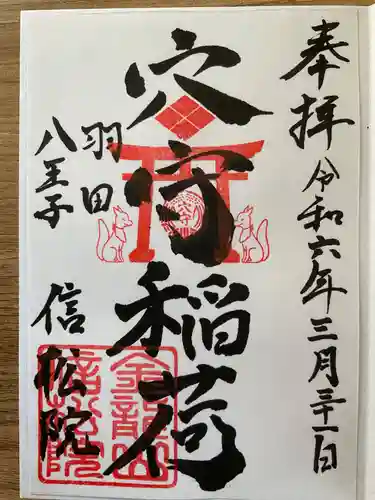 奉拝 令和六年三月三十一日
穴守稲荷
羽田
八王子
信松院
金龍山
信松院